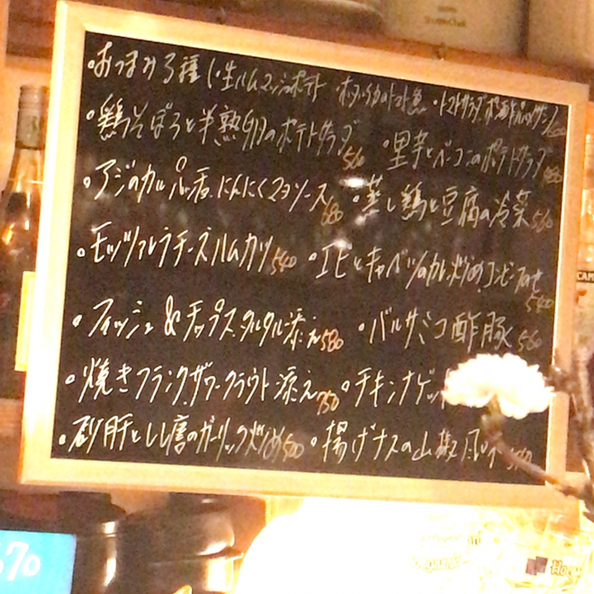 ・おつまみ3種(・生ハムマッシュポテト ・ホタルイカのトマト煮 ・トマトサラダ
・鶏そぼろと半熟卵のポテトサラダ 560 ・里芋とベーコンのポテトサラダ
・アジのカルパッチョ にんにくマヨソース ・蒸し鶏と豆腐の冷菜 560
・モッツァレラチーズハムカツ 540 ・エビとキャベツのカレー炒め 540
・フィッシュ&チップス タルタル添え 580 ・バルサミコ酢豚 560
・焼きフランク ザワークラウト添え 750 ・チキンナゲット
・砂肝としし唐のガーリック炒め 500 ・揚げナスの山椒風味